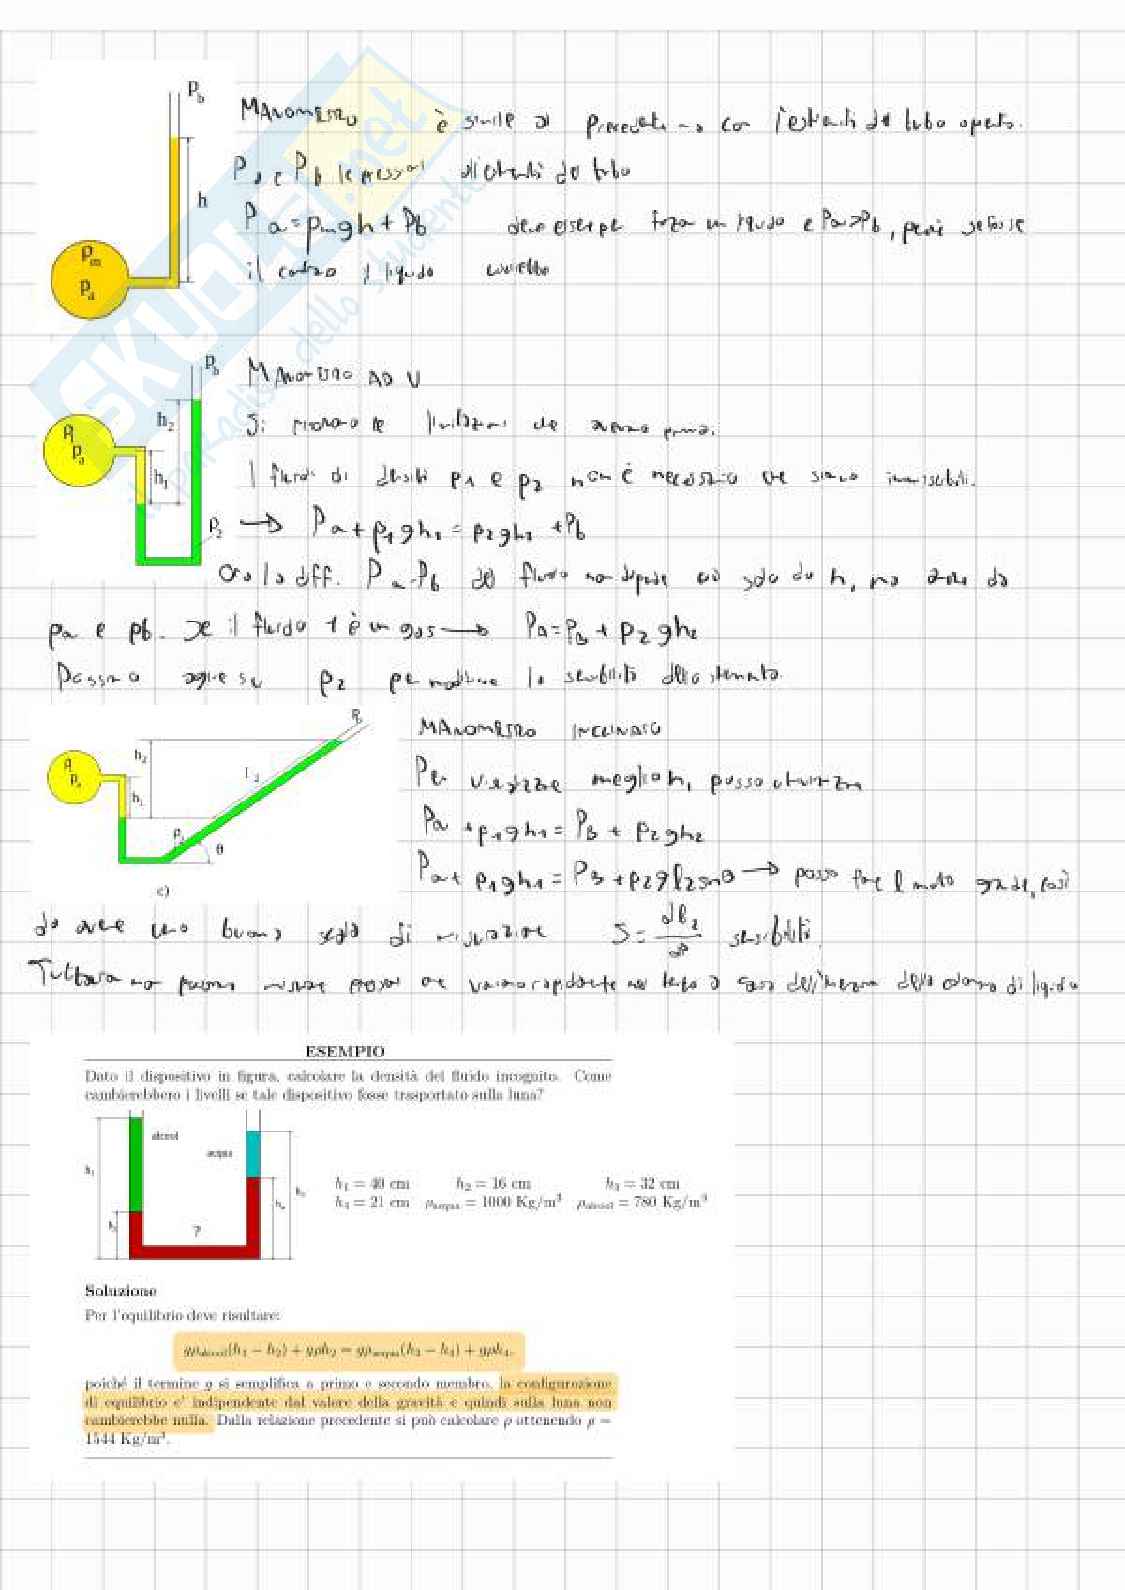 MANOMETRO è simile al precedente → con l'estremità del tubo aperto.
Pa e Pb le pressioni all'estremità del tubo
Pa = ρm g h + Pb deve essere per forza un liquido e Pa>Pb, perché se fosse
il contrario il liquido
Pb
h
ρm
Pa
MANOMETRO AD U
Si risolvono le limitazioni che avevamo prima.
I fluidi di densità ρ1 e ρ2 non è necessario che siano immiscibili.
→ Pa + ρ1 g h1 = ρ2 g h2 + Pb
Ora la diff. Pa-Pb del fluido non dipende più solo da h, ma anche da
ρa e ρb. Se il fluido 1 è un gas → Pa = PB + ρ2 g h2
Possiamo agire su ρ2 per modificare la sensibilità dello strumento.
Pb
h2
Pa
h1
ρ2
MANOMETRO INCLINATO
Per vedere meglio h, posso
Pa + ρ1 g h1 = PB + ρ2 g h2
Pa + ρ1 g h1 = PB + ρ2 g l2 senθ → posso fare l molto grande, così
da avere una buona scala di misurazione S = dl2/dP sensibilità.
Tuttavia non possiamo misurare pressioni che variano rapidamente nel tempo a causa dell'inerzia della colonna di liquido
h2
h1
Pa
ρ2
θ
c)
ESEMPIO
Dato il dispositivo in figura, calcolare la densità del fluido incognito. Come
cambierebbero i livelli se tale dispositivo fosse trasportato sulla luna?
alcool
acqua
h1
?
h1 = 40 cm h2 = 16 cm h3 = 32 cm
h4 = 21 cm ρacqua = 1000 Kg/m³ ρalcool = 780 Kg/m³
Soluzione
Per l'equilibrio deve risultare:
gρalcool(h1 − h2) + gρh2 = gρacqua(h3 − h4) + gρh4.
poiché il termine g si semplifica a primo e secondo membro, la configurazione
di equilibrio e' indipendente dal valore della gravità e quindi sulla luna non
cambierebbe nulla. Dalla relazione precedente si può calcolare ρ ottenendo ρ =
1544 Kg/m³.
SKUOLA.net
il paradiso dello studente